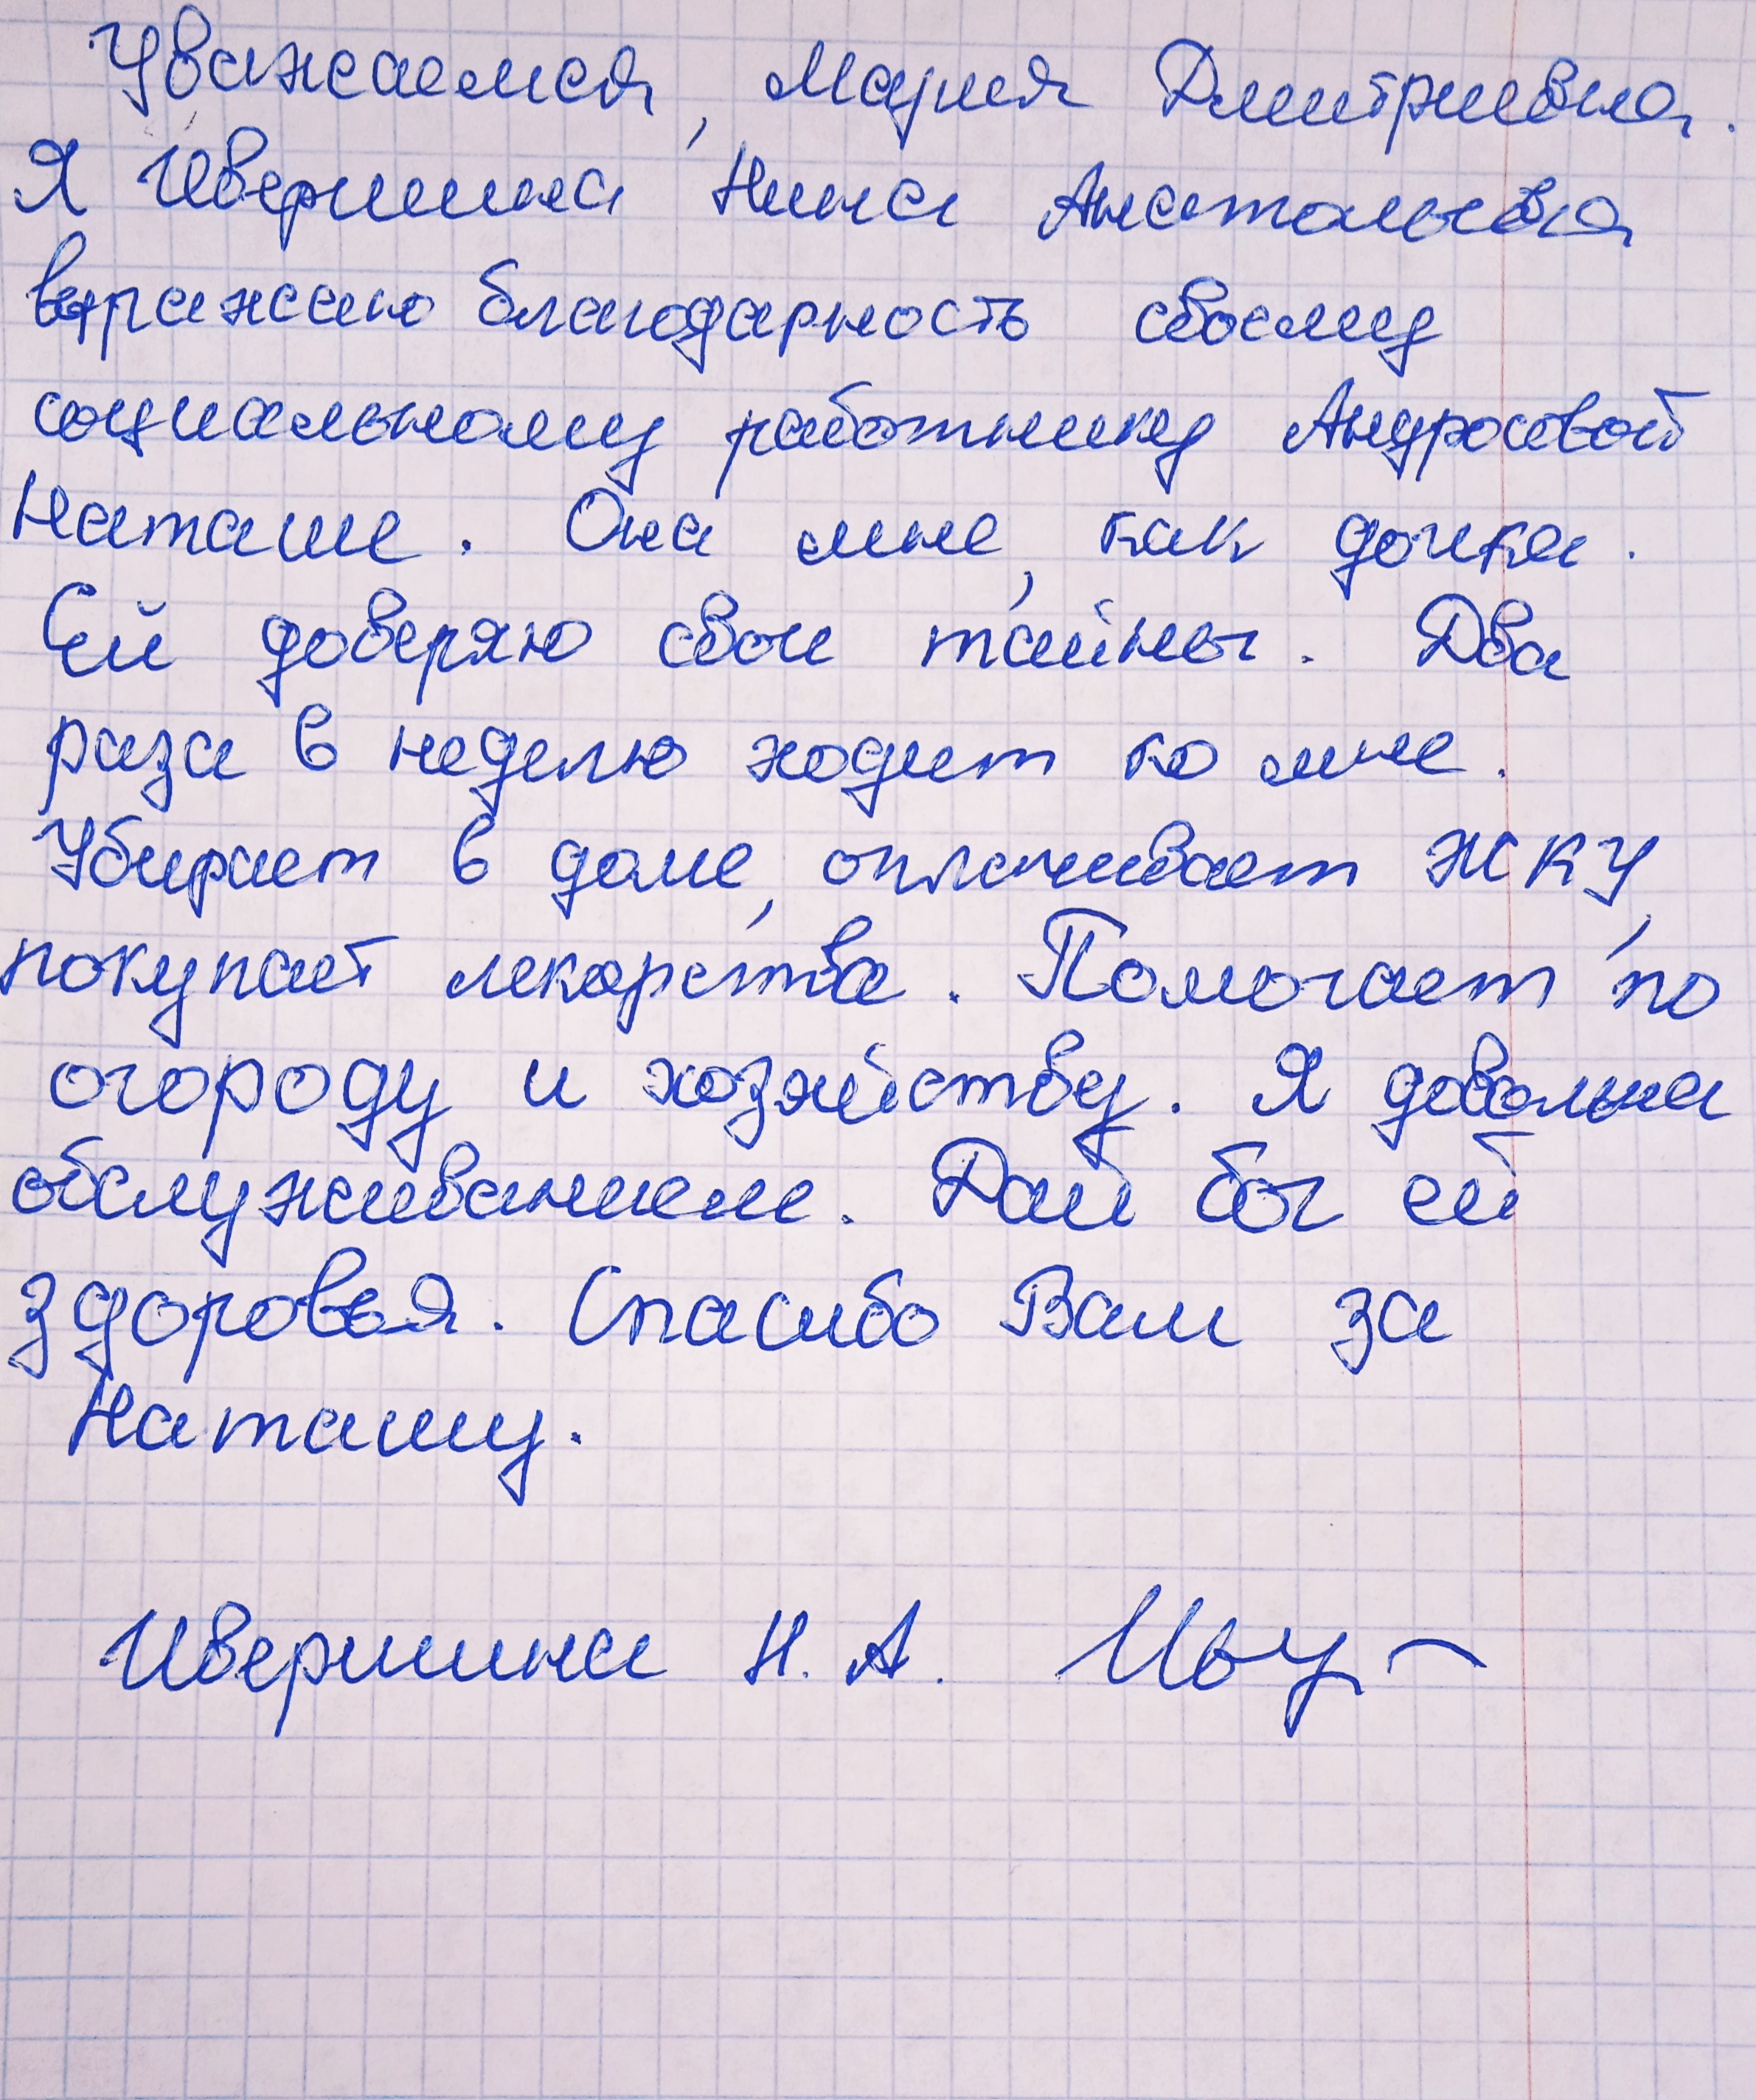 Уважаемая, Мария Дмитриевна.
Я Иверишина Нина Анатольевна
выражаю благодарность своему
социальному работнику Андросовой
Наташе. Она мне, как дочка.
Ей доверяю свои тайны. Два
раза в неделю ходит ко мне.
Убирает в доме, оплачивает ЖКУ,
покупает лекарства. Помогает по
огороду и хозяйству. Я довольна
обслуживанием. Дай бог ей
здоровья. Спасибо Вам за
Наташу.
Иверишина Н. А.